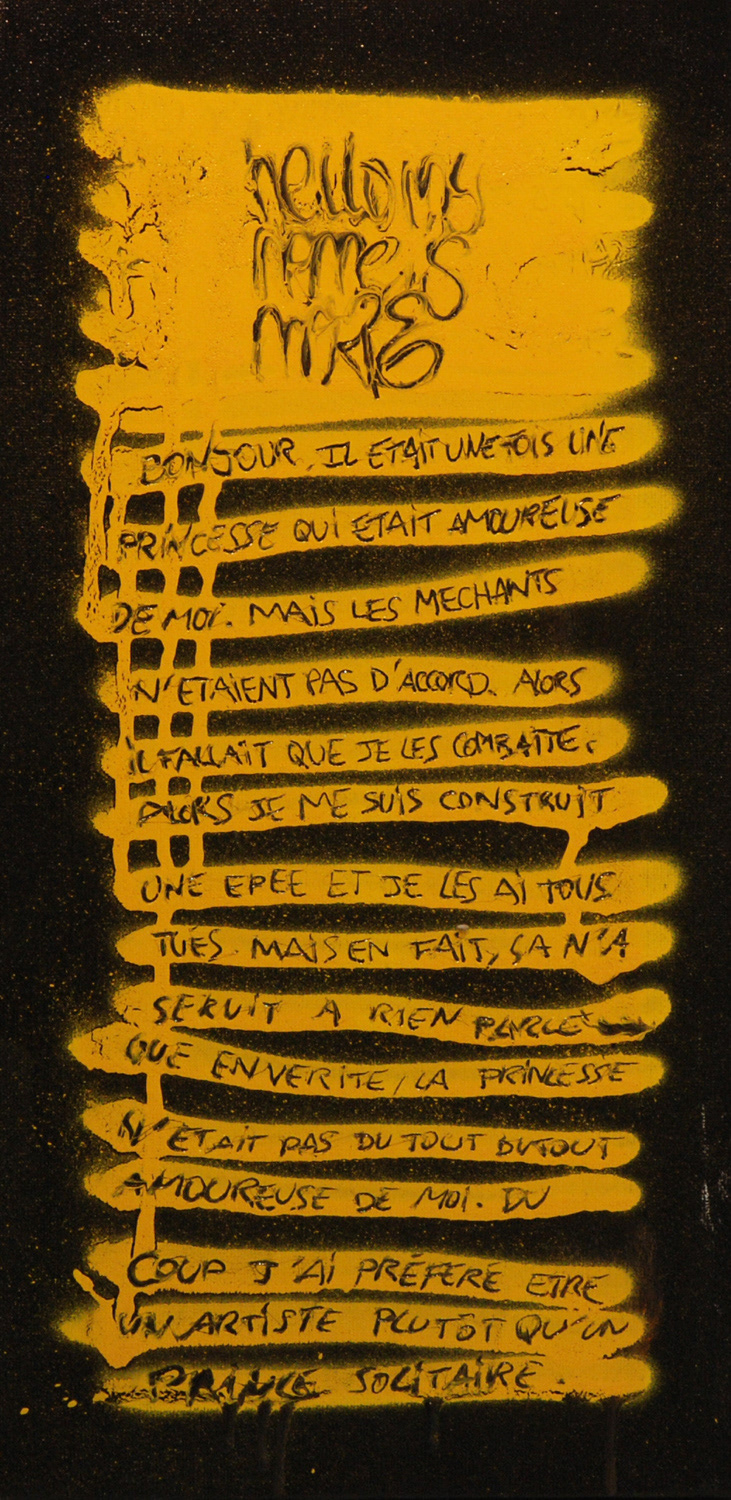 hello my
name is
BONJOUR, IL ETAIT UNE FOIS UNE
PRINCESSE QUI ETAIT AMOUREUSE
DE MOI. MAIS LES MECHANTS
N'ETAIENT PAS D'ACCORD. ALORS
IL FALLAIT QUE JE LES COMBATTE.
ALORS JE ME SUIS CONSTRUIT
UNE EPEE ET JE LES AI TOUS
TUÉS MAIS EN FAIT, ÇA N'A
SERVIT A RIEN PARCE
QUE EN VERITE, LA PRINCESSE
N'ETAIT PAS DU TOUT DUTOUT
AMOUREUSE DE MOI. DU
COUP J'AI PRÉFERÉ ETRE
UN ARTISTE PLUTÔT QU'UN
PRINCE SOLITAIRE.